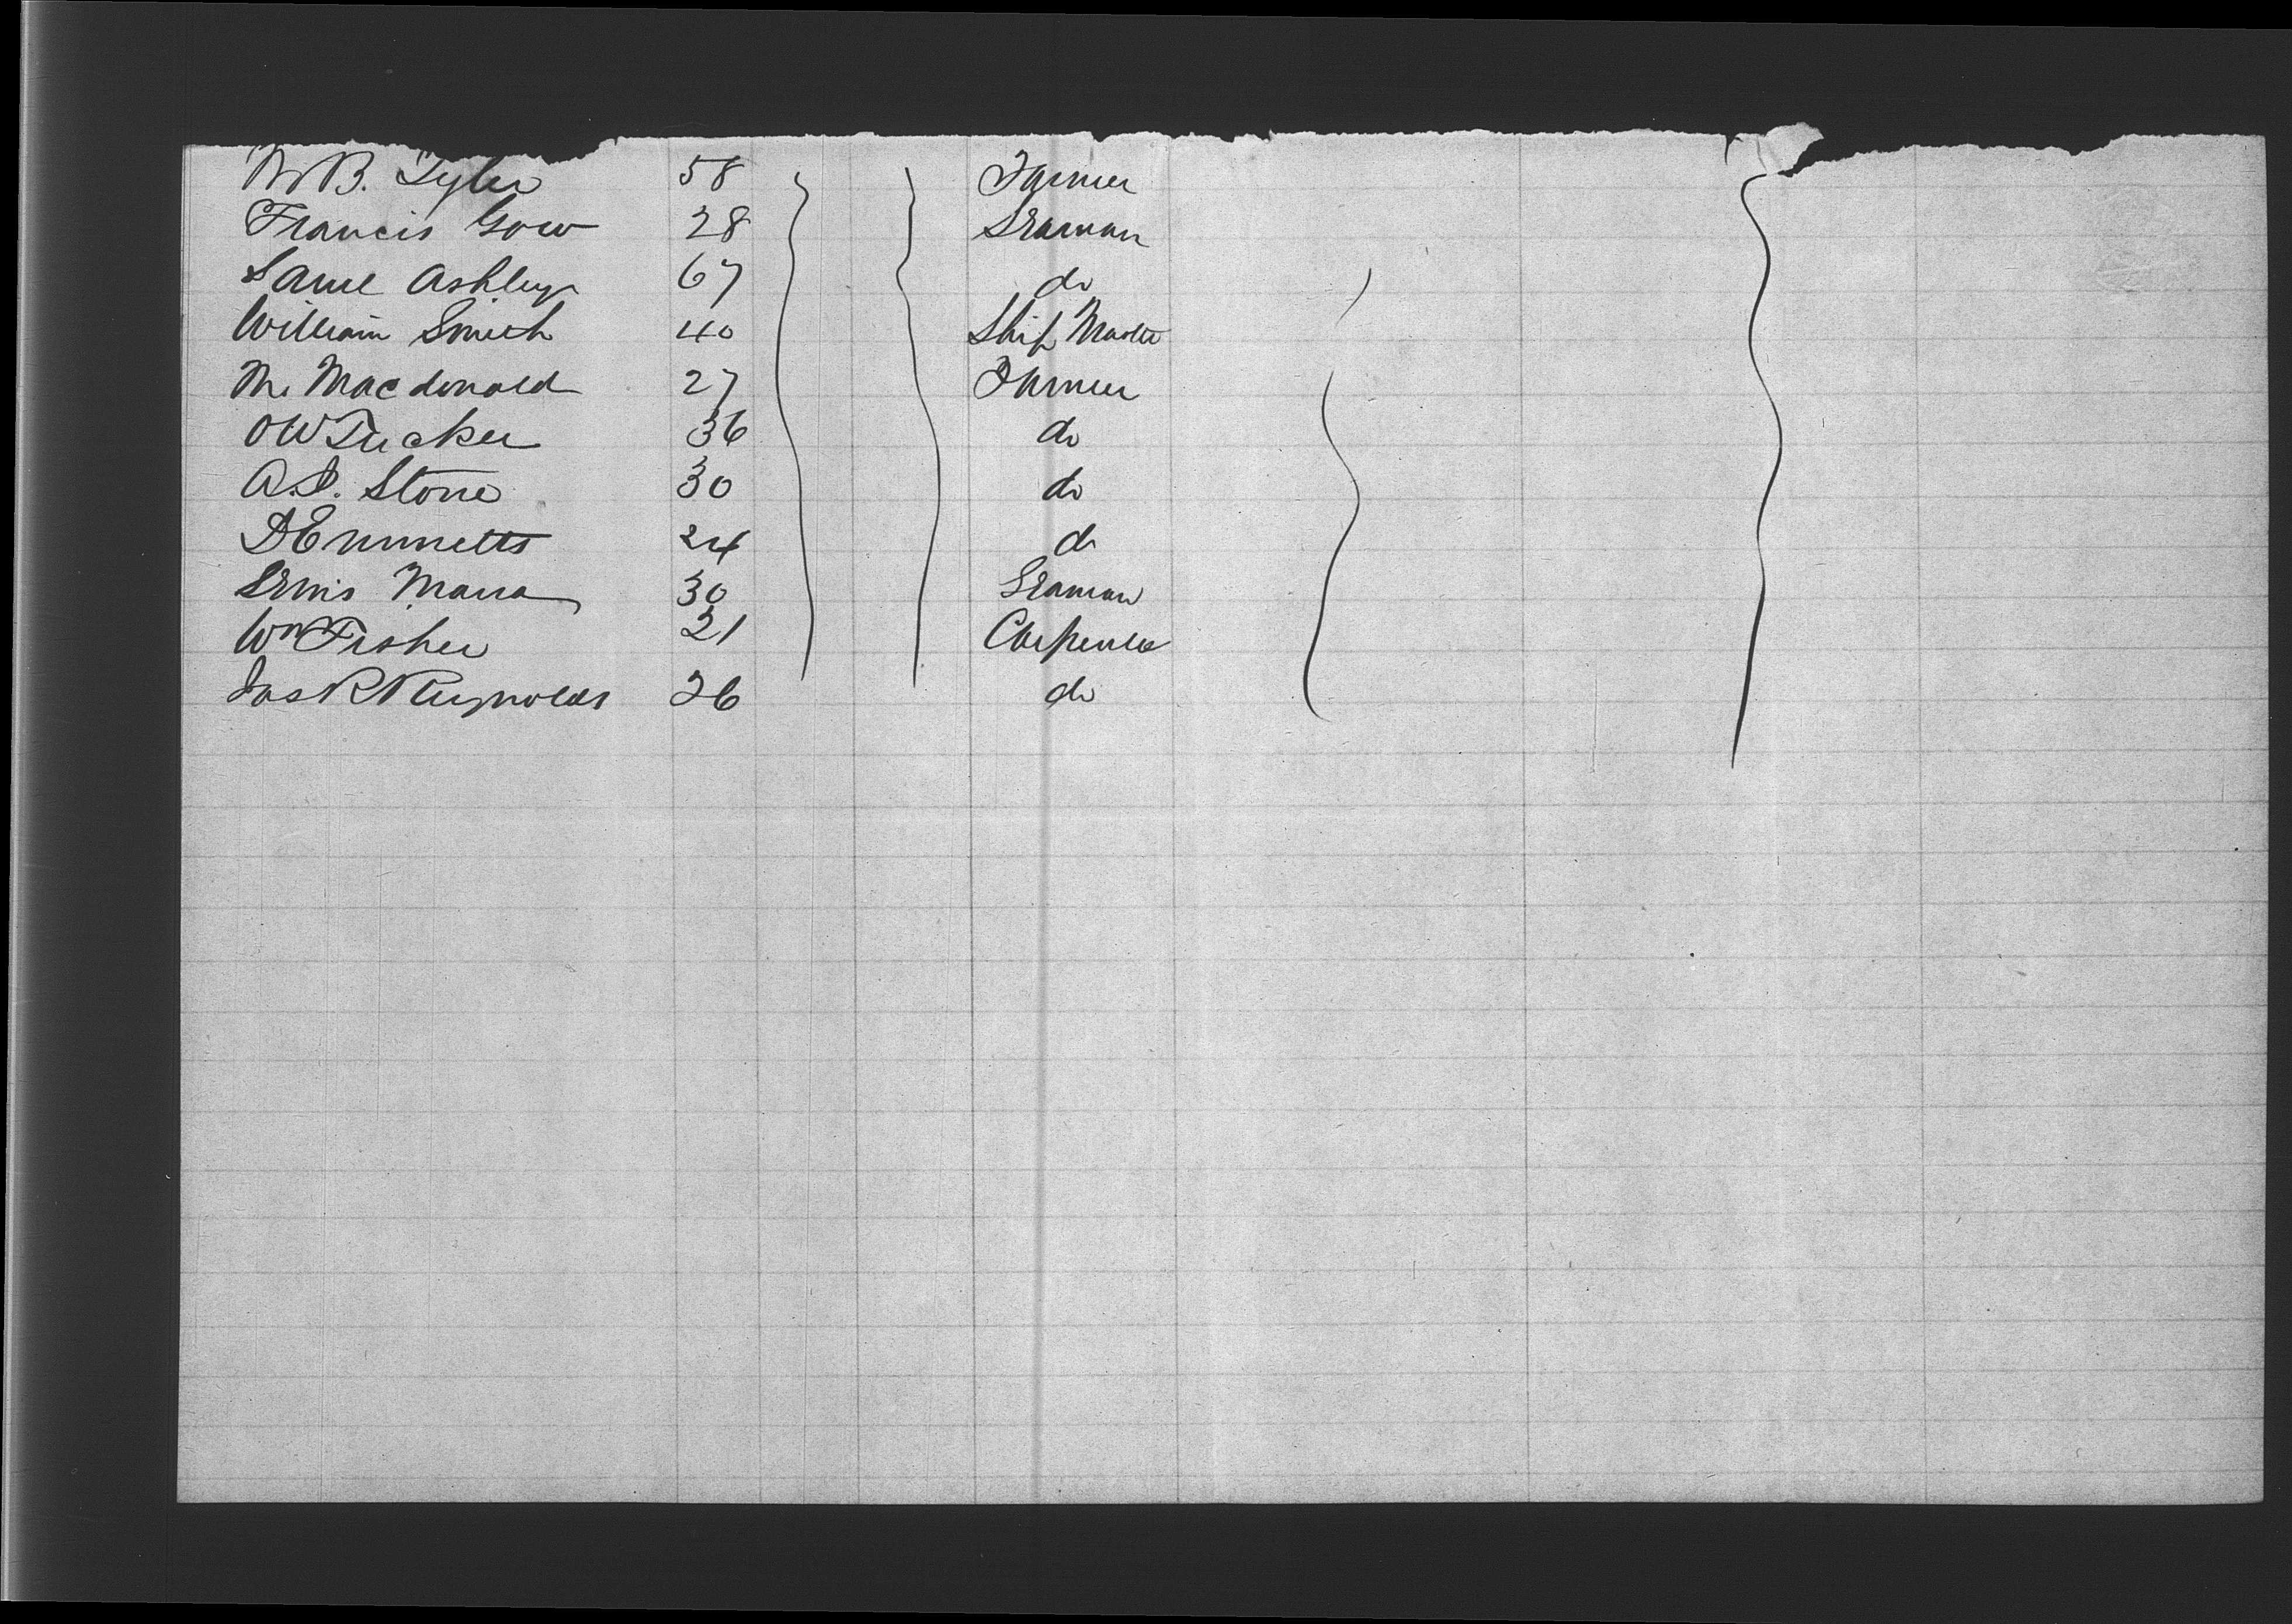 W B. Tyler 58 Farmer
Francis Gow 28 Seaman
Saml Ashley 67 do
William Smith 40 Ship Master
M. Macdonald 27 Farmer
O W Tucker 36 do
A.S. Stone 30 do
D Emmetts 24 do
Maria 30 Seaman
Wm Fisher 21 Carpenter
Jas R Reynolds 26 do